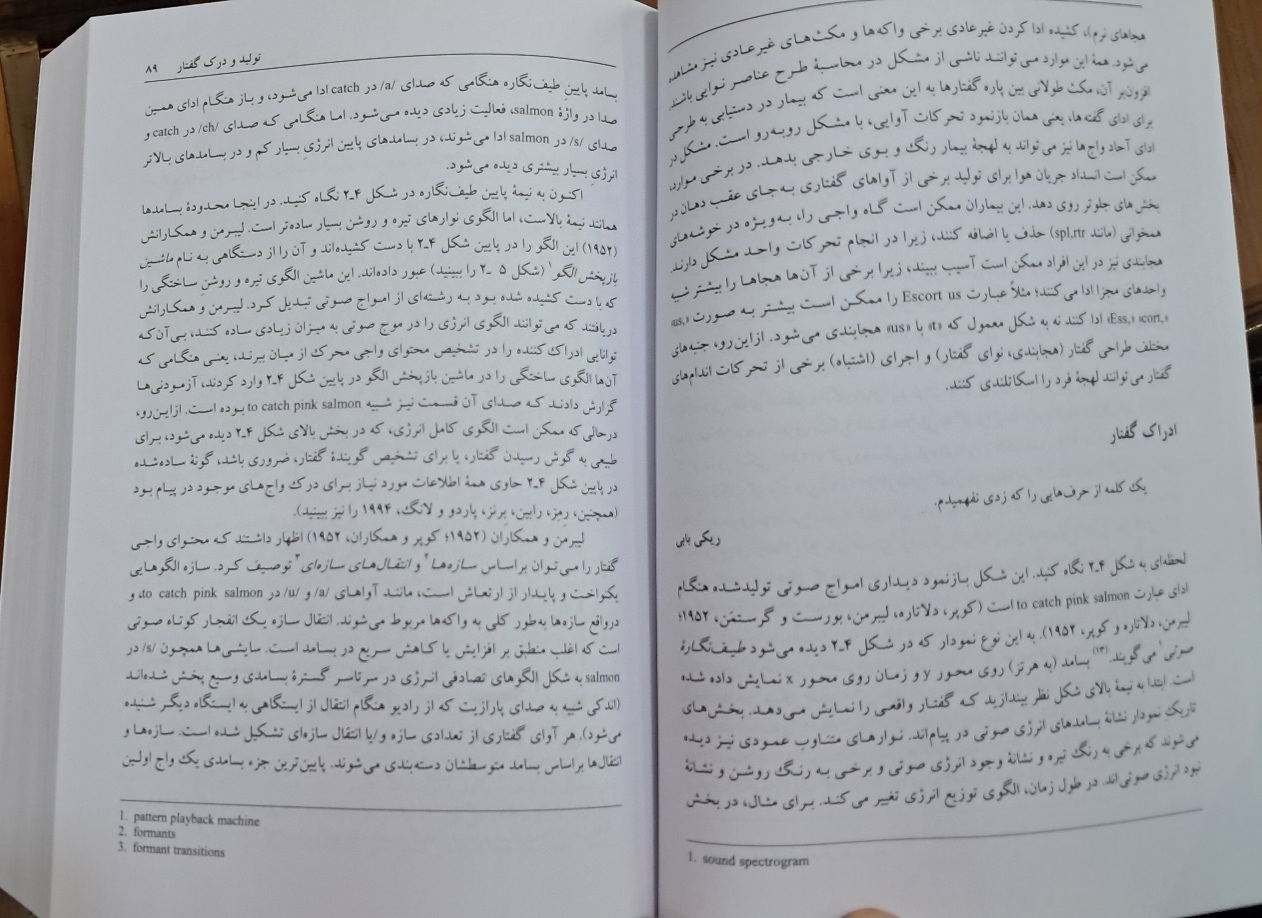 هجاهای نرم)، کشیده ادا کردن غیرعادی برخی واکه‌ها و مکث‌های غیرعادی نیز مشاهده
می‌شود. همهٔ این موارد می‌توانند ناشی از مشکل در محاسبهٔ طرح عناصر نوایی باشند.
افزون‌بر آن، مکث طولانی بین پاره گفتارها به این معنی است که بیمار در دستیابی به طرحی
برای ادای گفته‌ها، یعنی همان بازنمود تحرکات آوایی، با مشکل روبه‌رو است. مشکل در
ادای آحاد واج‌ها نیز می‌تواند به لهجهٔ بیمار رنگ و بوی خارجی بدهد. در برخی موارد،
ممکن است انسداد جریان هوا برای تولید برخی از آواهای گفتاری به‌جای عقب دهان در
بخش‌های جلوتر روی دهد. این بیماران ممکن است گاه واجی را، به‌ویژه در خوشه‌های
همخوانی (مانند spl,rtr) حذف یا اضافه کنند، زیرا در انجام تحرکات واحد مشکل دارند.
هجابندی نیز در این افراد ممکن است آسیب ببیند، زیرا برخی از آن‌ها هجاها را بیشتر شبیه
واحدهای مجزا ادا می‌کنند؛ مثلاً عبارت Escort us را ممکن است بیشتر به صورت «us,
«Ess,» «cort,» ادا کنند نه به شکل معمول که «t» با «us» هجابندی می‌شود. ازاین‌رو، جنبه‌های
مختلف طراحی گفتار (هجابندی، نوای گفتار) و اجرای (اشتباه) برخی از تحرکات اندام‌های
گفتار می‌توانند لهجهٔ فرد را اسکاتلندی کنند.
ادراک گفتار
یک کلمه از حرف‌هایی را که زدی نفهمیدم.
ریکی بابی
لحظه‌ای به شکل ۴ـ۲ نگاه کنید. این شکل بازنمود دیداری امواج صوتی تولیدشده هنگام
ادای عبارت to catch pink salmon است (کوپر، دلاتاره، لیبرمن، بورست و گرستمَن، ۱۹۵۲؛
لیبرمن، دلاتاره و کوپر، ۱۹۵۲). به این نوع نمودار که در شکل ۴ـ۲ دیده می‌شود طیف‌نگارهٔ
صوتی۱ می‌گویند.(۱۳) بسامد (به هرتز) روی محور y و زمان روی محور x نمایش داده شده
است. ابتدا به نیمهٔ بالای شکل نظر بیندازید که گفتار واقعی را نمایش می‌دهد. بخش‌های
تاریک نمودار نشانهٔ بسامدهای انرژی صوتی در پیام‌اند. نوارهای متناوب عمودی نیز دیده
می‌شوند که برخی به رنگ تیره و نشانهٔ وجود انرژی صوتی و برخی به رنگ روشن و نشانهٔ
نبود انرژی صوتی‌اند. در طول زمان، الگوی توزیع انرژی تغییر می‌کند. برای مثال، در بخش
1. sound spectrogram
تولید و درک گفتار ۸۹
بسامد پایینِ طیف‌نگاره هنگامی که صدای /a/ در catch ادا می‌شود، و باز هنگام ادای همین
صدا در واژهٔ salmon، فعالیت زیادی دیده می‌شود. اما هنگامی که صدای /ch/ در catch و
صدای /s/ در salmon ادا می‌شوند، در بسامدهای پایین انرژیِ بسیار کم و در بسامدهای بالاتر
انرژیِ بسیار بیشتری دیده می‌شود.
اکنون به نیمهٔ پایین طیف‌نگاره در شکل ۴ـ۲ نگاه کنید. در اینجا محدودهٔ بسامدها
همانند نیمهٔ بالاست، اما الگوی نوارهای تیره و روشن بسیار ساده‌تر است. لیبرمن و همکارانش
(۱۹۵۲) این الگو را در پایین شکل ۴ـ۲ با دست کشیده‌اند و آن را از دستگاهی به نام ماشین
بازپخش الگو۱ (شکل ۵ ـ۲ را ببینید) عبور داده‌اند. این ماشین الگوی تیره و روشنِ ساختگی را
که با دست کشیده شده بود به رشته‌ای از امواج صوتی تبدیل کرد. لیبرمن و همکارانش
دریافتند که می‌توانند الگوی انرژی را در موج صوتی به میزان زیادی ساده کنند، بی‌آن‌که
توانایی ادراک‌کننده را در تشخیص محتوای واجی محرک از میان ببرند، یعنی هنگامی که
آن‌ها الگوی ساختگی را در ماشین بازپخش الگو در پایین شکل ۴ـ۲ وارد کردند، آزمودنی‌ها
گزارش دادند که صدای آن قسمت نیز شبیه to catch pink salmon بوده است. ازاین‌رو،
درحالی‌که ممکن است الگوی کامل انرژی، که در بخش بالای شکل ۴ـ۲ دیده می‌شود، برای
طبیعی به گوش رسیدن گفتار، یا برای تشخیص گویندهٔ گفتار، ضروری باشد، گونهٔ ساده‌شده
در پایین شکل ۴ـ۲ حاوی همهٔ اطلاعات مورد نیاز برای درک واج‌های موجود در پیام بود
(همچنین، رمِز، رابین، برنز، پاردو و لانگ، ۱۹۹۴ را نیز ببینید).
لیبرمن و همکاران (۱۹۵۲؛ کوپر و همکاران، ۱۹۵۲) اظهار داشتند که محتوای واجی
گفتار را می‌توان براساس سازه‌ها۲ و انتقال‌های سازه‌ای۳ توصیف کرد. سازه الگوهایی
یکنواخت و پایدار از ارتعاش است، مانند آواهای /a/ و /u/ در to catch pink salmon، و
درواقع سازه‌ها به‌طور کلی به واکه‌ها مربوط می‌شوند. انتقال سازه یک انفجار کوتاه صوتی
است که اغلب منطبق بر افزایش یا کاهش سریع در بسامد است. سایشی‌ها همچون /s/ در
salmon به شکل الگوهای تصادفی انرژی در سرتاسر گسترهٔ بسامدی وسیع پخش شده‌اند
(اندکی شبیه به صدای پارازیت که از رادیو هنگام انتقال از ایستگاهی به ایستگاه دیگر شنیده
می‌شود). هر آوای گفتاری از تعدادی سازه و/یا انتقال سازه‌ای تشکیل شده است. سازه‌ها و
انتقال‌ها براساس بسامد متوسطشان دسته‌بندی می‌شوند. پایین‌ترین جزء بسامدی یک واج اولین
1. pattern playback machine
2. formants
3. formant transitions